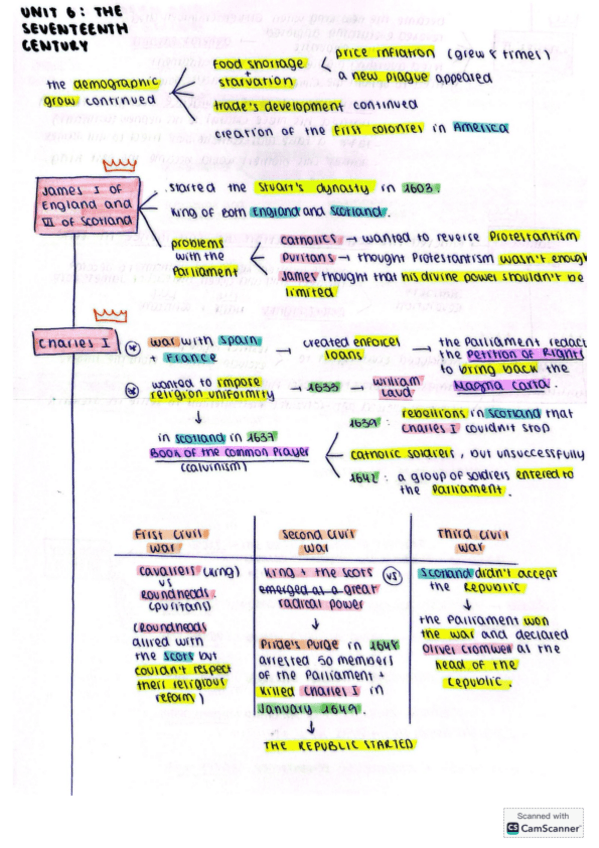 UNIT 6: THE
SEVENTEENTH
CENTURY
the demographic
grow continued
food shortage
+
starvation
price inflation (grew 6 times)
a new plague appeared
trade's development continued
creation of the first colonies in America
James I of
England and
III of Scotland
started the Stuart's dynasty in 1603.
King of both England and Scotland.
problems
with the
Parliament
catholics → wanted to reverse Protestantism
Puritans → thought Protestantism wasn't enough
James thought that his divine power shouldn't be
limited
Charles I
war with Spain
+ France
→ created enforcel
loans
→ the Parliament redact
the Petition of Rights
to bring back the
Magna Carta.
wanted to impose
religion uniformity
→ 1633 → William
Laud
↓
in Scotland in 1637
Book of the Common Prayer
(calvinism)
1639: rebellions in Scotland that
Charles I couldn't stop
catholic soldiers, but unsuccessfully
1642: a group of soldiers entered to
the Parliament.
First Civil
War
Cavaliers (King)
vs
Roundheads.
(puritans)
(Roundheads
allied with
the Scots but
couldn't respect
their religious
reform)
Second Civil
War
King + the Scots vs
emerged as a great
radical power
↓
Pride's Purge in 1648
arrested 50 members
of the Parliament +
killed Charles I in
January 1649.
↓
THE REPUBLIC STARTED
Third Civil
War
Scotland didn't accept
the Republic
↓
the Parliament won
the war and declared
Oliver Cromwell as the
head of the
Republic.
Scanned with
CS CamScanner